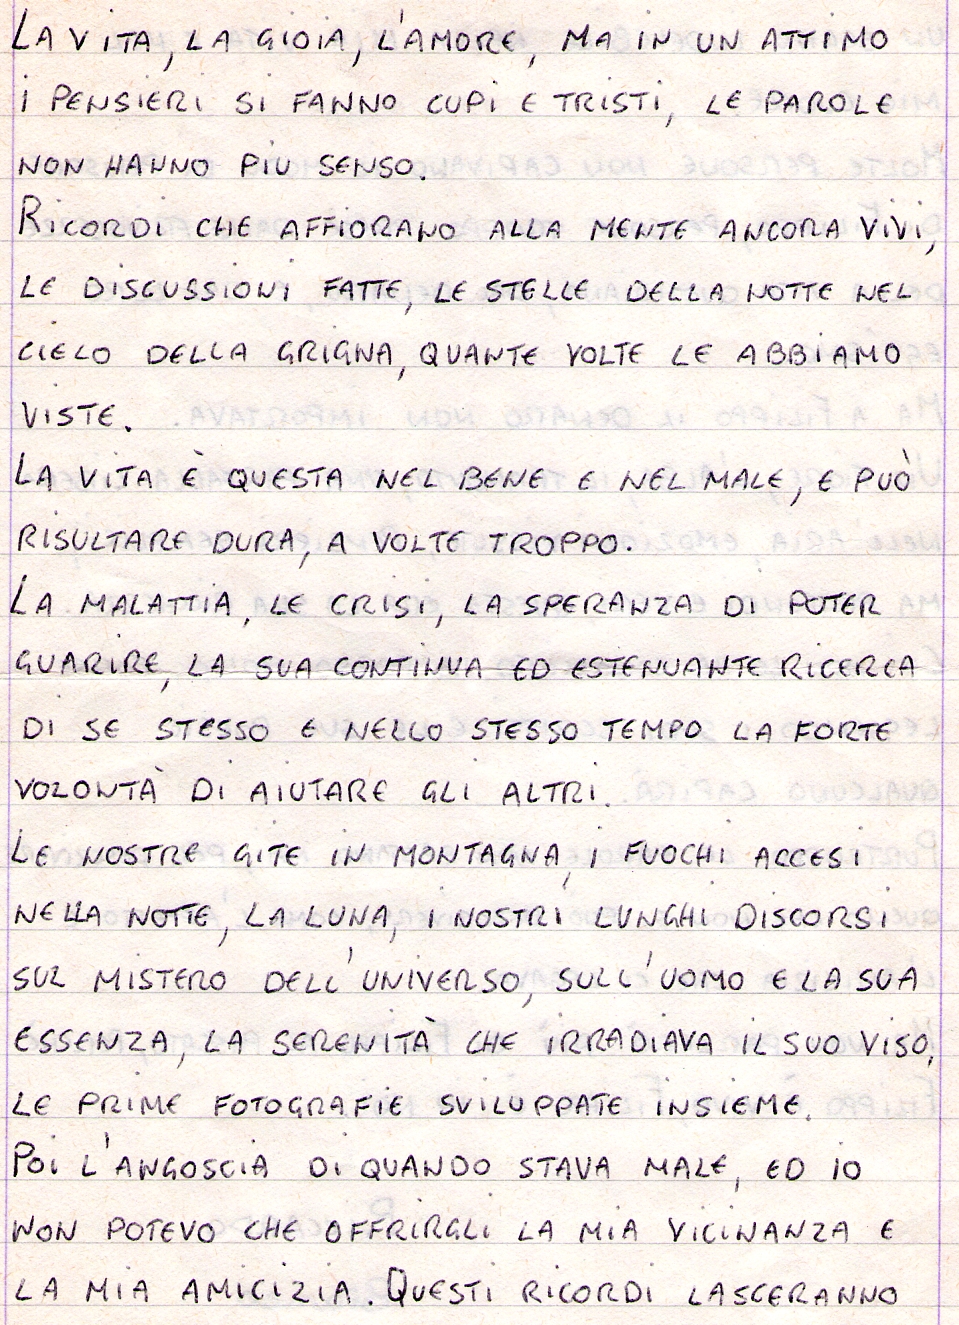 LA VITA, LA GIOIA, L'AMORE, MA IN UN ATTIMO
I PENSIERI SI FANNO CUPI E TRISTI, LE PAROLE
NON HANNO PIU SENSO.
RICORDI CHE AFFIORANO ALLA MENTE ANCORA VIVI,
LE DISCUSSIONI FATTE, LE STELLE DELLA NOTTE NEL
CIELO DELLA GRIGNA, QUANTE VOLTE LE ABBIAMO
VISTE.
LA VITA È QUESTA NEL BENE E NEL MALE, E PUÒ
RISULTARE DURA, A VOLTE TROPPO.
LA MALATTIA, LE CRISI, LA SPERANZA DI POTER
GUARIRE, LA SUA CONTINUA ED ESTENUANTE RICERCA
DI SE STESSO E NELLO STESSO TEMPO LA FORTE
VOLONTÀ DI AIUTARE GLI ALTRI.
LE NOSTRE GITE IN MONTAGNA, I FUOCHI ACCESI
NELLA NOTTE, LA LUNA, I NOSTRI LUNGHI DISCORSI
SUL MISTERO DELL'UNIVERSO, SULL'UOMO E LA SUA
ESSENZA, LA SERENITÀ CHE IRRADIAVA IL SUO VISO,
LE PRIME FOTOGRAFIE SVILUPPATE INSIEME.
POI L'ANGOSCIA DI QUANDO STAVA MALE, ED IO
NON POTEVO CHE OFFRIRGLI LA MIA VICINANZA E
LA MIA AMICIZIA. QUESTI RICORDI LASCERANNO